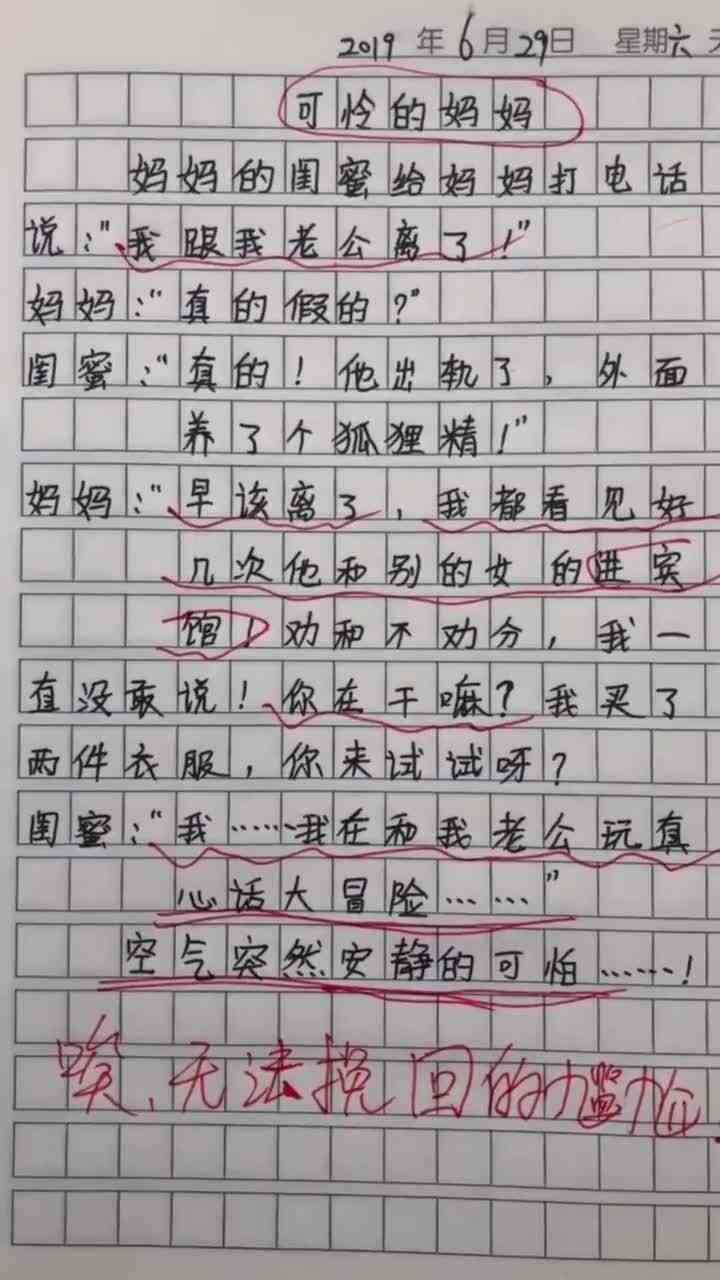 2019 年 6月 29日 星期六 天
可怜的妈妈
妈妈的闺蜜给妈妈打电话
说:"我跟我老公离了!"
妈妈:"真的假的?"
闺蜜:"真的!他出轨了,外面
养了个狐狸精!"
妈妈:"早该离了,我都看见好
几次他和别的女的进宾
馆!劝和不劝分,我一
直没敢说!你在干嘛?我买了
两件衣服,你来试试呀?
闺蜜:"我……我在和我老公玩真
心话大冒险……"
空气突然安静的可怕……!
唉、无法挽回的尴尬.